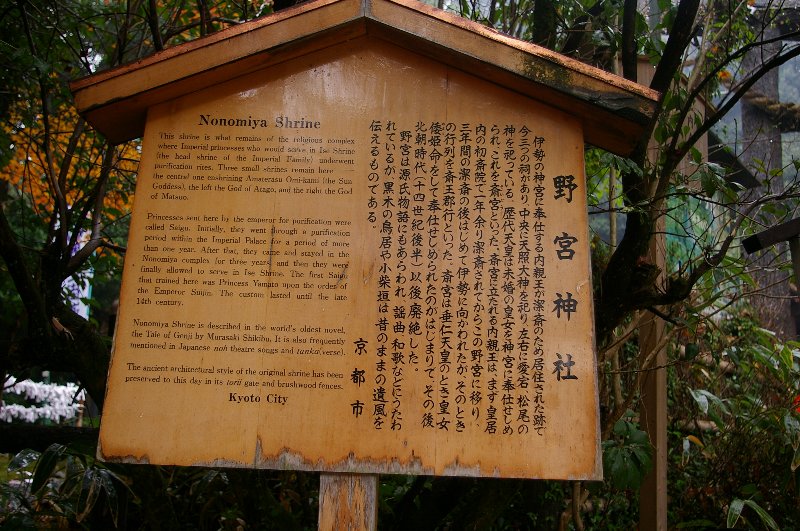 Nonomiya Shrine
This shrine is what remains of the religious complex
where Imperial princesses who would serve in Ise Shrine
(the head shrine of the Imperial Family) underwent
purification rites. Three small shrines remain here
the central one enshrining Amaterasu Omi-kami (the Sun
Goddess), the left the God of Atago, and the right the God
of Matsuo.
Princesses sent here by the emperor for purification were
called Saigu. Initially, they went through a purification
period within the Imperial Palace for a period of more
than one year. After that, they came and stayed in the
Nonomiya complex for three years, and then they were
finally allowed to serve in Ise Shrine. The first Saigu
that trained here was Princess Yamato upon the order of
the Emperor Suijin. The custom lasted until the late
14th century.
Nonomiya Shrine is described in the world's oldest novel,
the Tale of Genji by Murasaki Shikibu. It is also frequently
mentioned in Japanese noh theatre songs and tanka(verse).
The ancient architectural style of the original shrine has been
preserved to this day in its torii gate and brushwood fences.
Kyoto City
野宮神社
伊勢の神宮に奉仕する内親王が潔斎のため居住された跡で
今三つの祠があり、中央に天照大神を祀り、左右に愛宕、松尾の
神を祀っている。歴代天皇は未婚の皇女を神宮に奉仕せしめ
られ、これを斎宮といった。斎宮に立たれる内親王は、まず皇居
内の初斎院で一年余り潔斎されてからこの野宮に移り、
三年間の潔斎の後はじめて伊勢に向かわれたが、そのとき
の行列を斎王群行といった。斎宮は垂仁天皇のとき皇女
倭姫命をして奉仕せしめられたのがはじまりで、その後
北朝時代(十四世紀後半)以後廃絶した。
野宮は源氏物語にもあらわれ、謡曲、和歌などにうたわ
れているが、黒木の鳥居や小柴垣は昔のままの遺風を
伝えるものである。
京都市